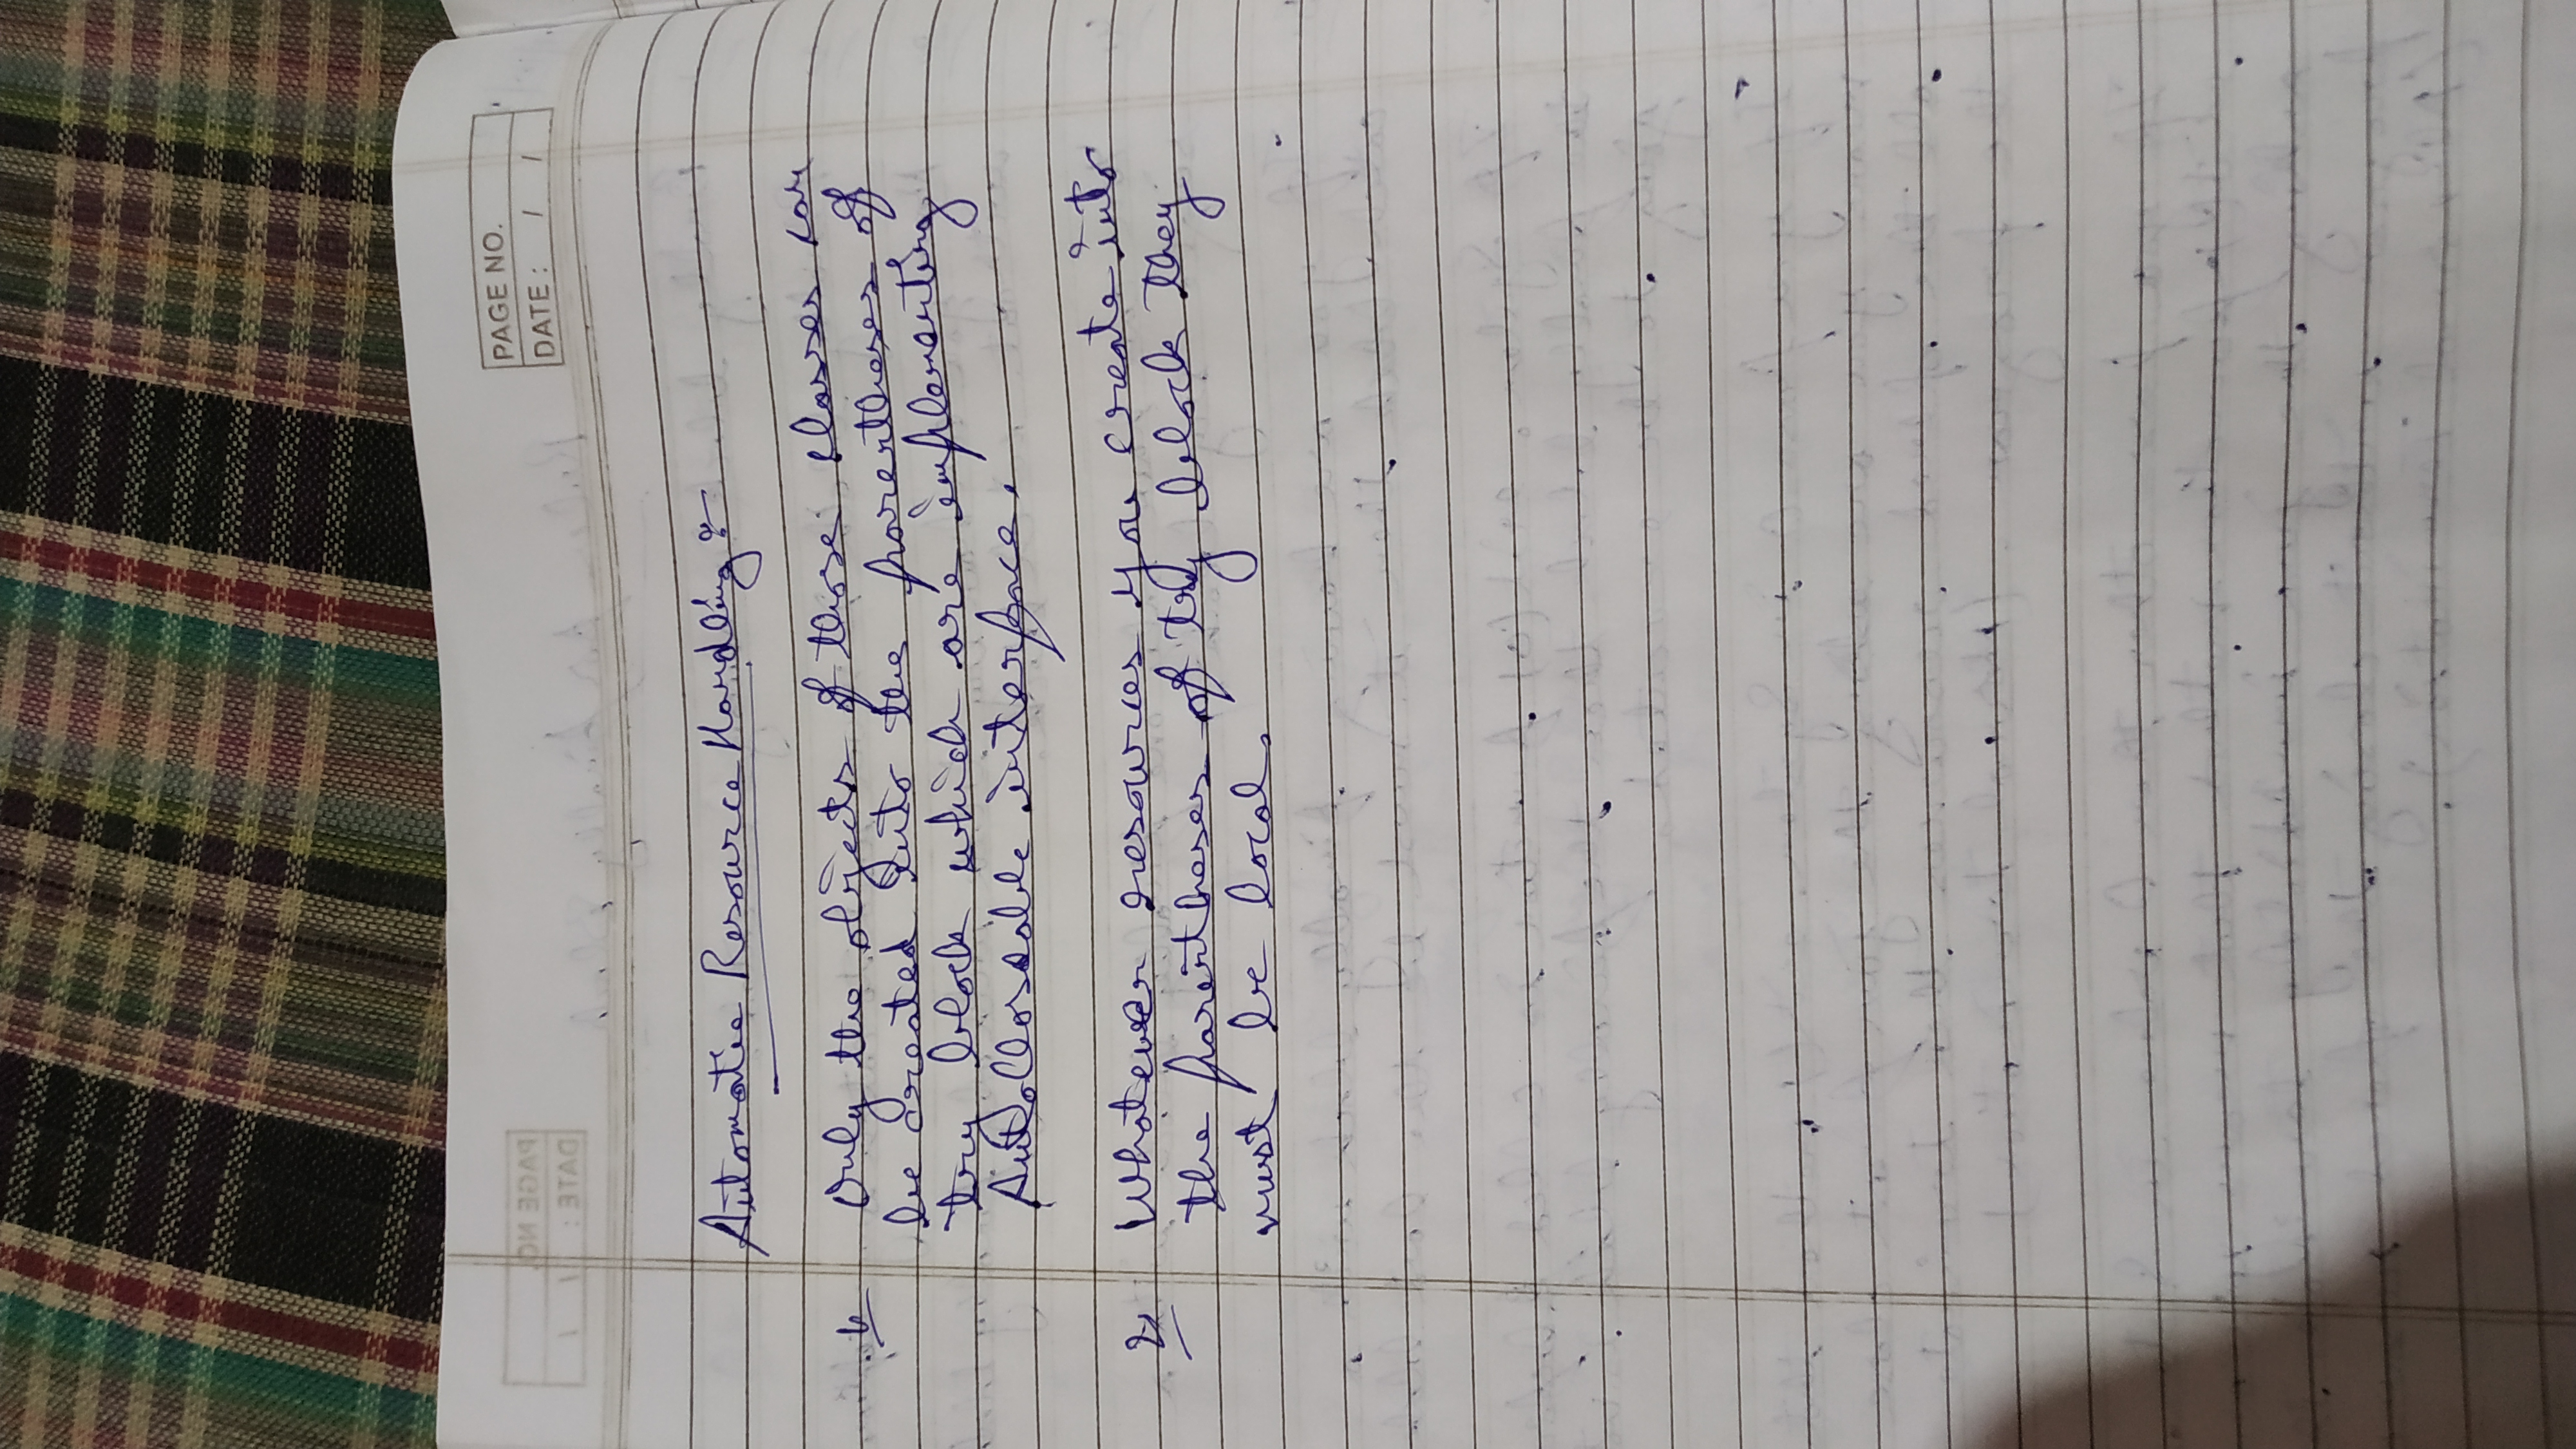 PAGE NO.
DATE : / /
Automatic Resource Handling :-
1. Only the objects of those classes can
be created into the parentheses of
try block which are implementing
AutoCloseable interface.
2. Whatever resources you create into
the parentheses of try block they
must be local.